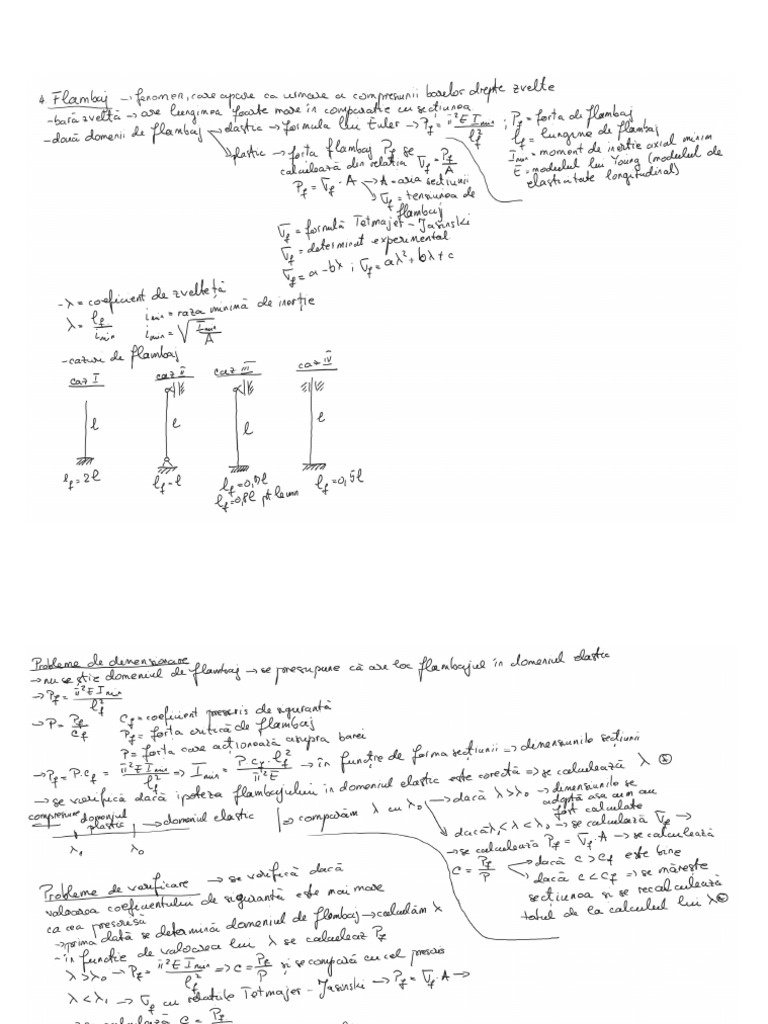 4. Flambaj → fenomen, care apare ca urmare a compresiunii barelor drepte zvelte
-bară zveltă → are lungimea foarte mare in comparatie cu sectiunea
-două domenii de flambaj → elastic → formula lui Euler → P_f = π²E I_min / l_f² ; P_f = forta de flambaj
l_f = lungime de flambaj
I_min = moment de inertie axial minim
E = modulul lui Young (modulul de
elasticitate longitudinal)
plastic → forta flambaj P_f se
calculează din relatia σ_f = P_f / A
P_f = σ_f · A → A = aria sectiunii
σ_f = tensiunea de
flambaj
σ_f = formulă Tetmajer - Jasinski
σ_f = determinat experimental
σ_f = a - bλ ; σ_f = aλ² + bλ + c
-λ = coeficient de zveltetă
λ = l_f / i_min i_min = raza minimă de inertie
i_min = √(I_min / A)
-cazuri de flambaj
caz I caz II caz III caz IV
l l l l
l_f = 2l l_f = l l_f = 0,7l l_f = 0,5l
l_f = 0,8l pt. lemn
Probleme de dimensionare
→ nu se știe domeniul de flambaj → se presupune că are loc flambajul in domeniul elastic
→ P_f = π²E I_min / l_f²
→ P = P_f / c_f c_f = coeficient prescris de sigurantă
P_f = forta critică de flambaj
P = forta care actionează asupra barei
→ P_f = P · c_f = π²E I_min / l_f² ⇒ I_min = P c_f · l_f² / π²E → în functie de forma sectiunii ⇒ dimensiunile sectiunii
→ se verifică dacă ipoteza flambajului in domeniul elastic este corectă ⇒ se calculează λ ⊛
compresiune domeniul plastic → domeniul elastic ⇒ comparăm λ cu λ₀ → dacă λ > λ₀ → dimensiunile se
adoptă asa cum au
fost calculate
λ₁ λ₀
dacă λ₁ < λ < λ₀ → se calculează σ_f →
→ se calculează P_f = σ_f · A → se calculează
c = P_f / P → dacă c > c_f este bine
→ dacă c < c_f ⇒ se mărește
sectiunea si se recalculează
totul de la calculul lui λ ⊛
Probleme de verificare → se verifică dacă
valoarea coeficientului de sigurantă este mai mare
ca cea prescrisă
→ prima dată se determină domeniul de flambaj → calculăm λ
- în functie de valoarea lui λ se calculeaz P_f
λ > λ₀ → P_f = π²E I_min / l_f² ⇒ c = P_f / P si se compară cu cel prescris
λ < λ₁ → σ_f cu relatiile Tetmajer - Jasinski → P_f = σ_f · A →
c = P_f